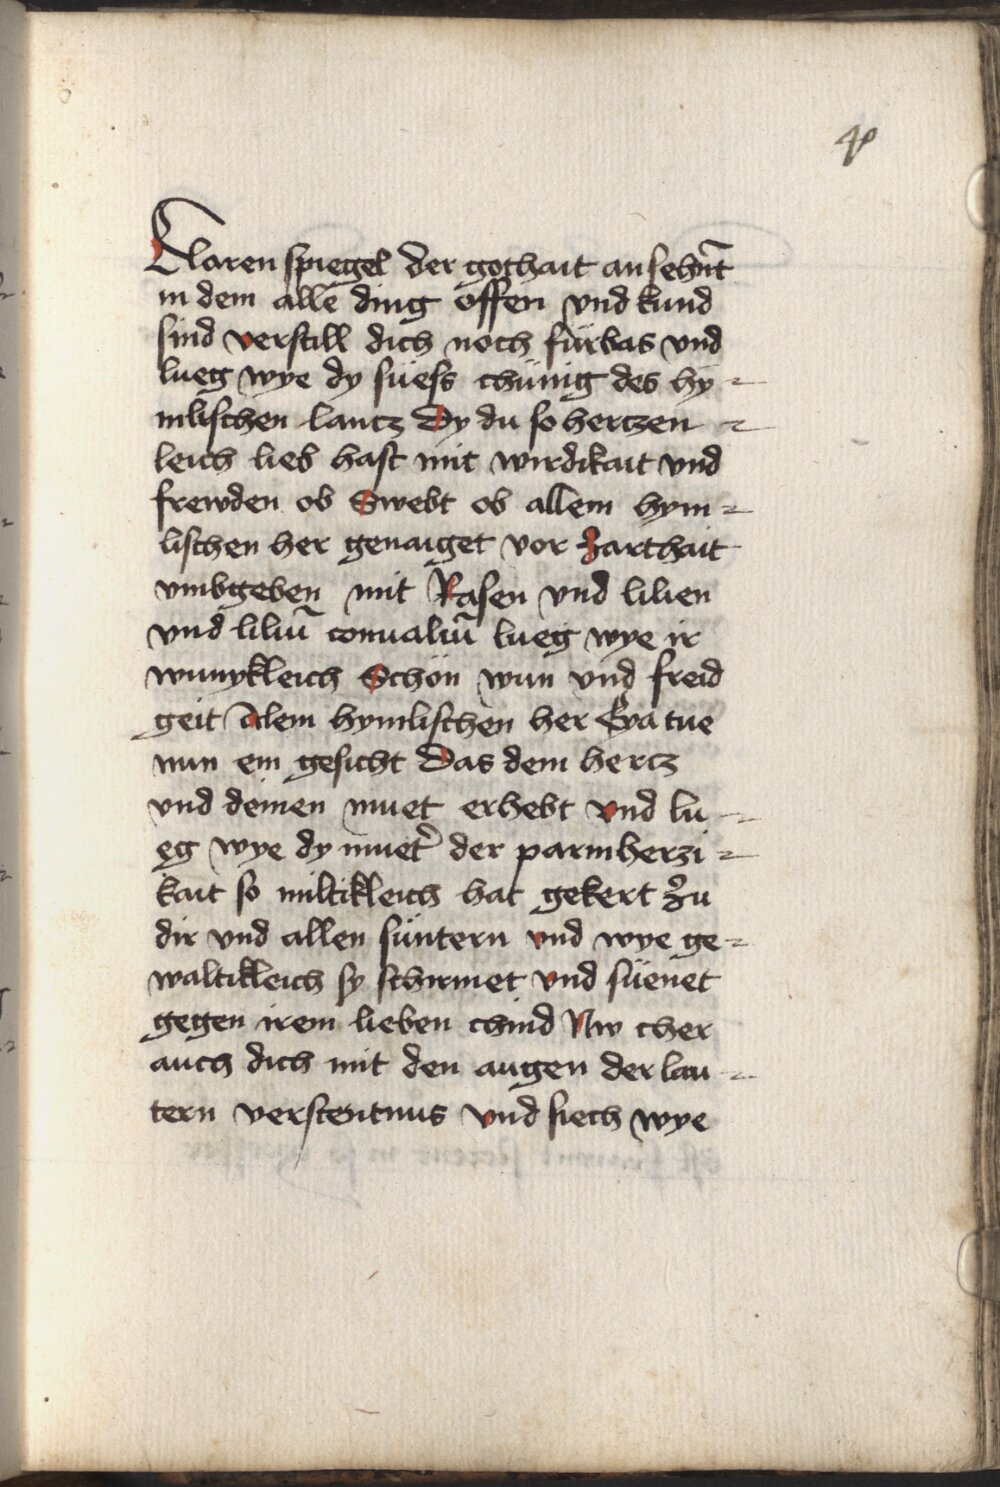 4
Claren spiegel der gothait ansehn̄t
in dem alle ding offen vnd kund
sind verstill dich noch fürbas vnd
lueg wye dy süess chünig des hÿ=
mlischen lantz Dy du so hertzen=
leich lieb hast mit wirdikait vnd
frewden ob Swebt ob allem hym=
lischen her genaiget vor zarthait
vmbgeben mit Rasen vnd lilien
vnd liliū conualiū lueg wye ir
wunykleich Schön wun vnd freid
geit alem hymlischen her Eya tue
nun ein gesicht Das dem hercz
vnd deinen muet erhebt vnd lu=
eg wye dy muet̛ der parmherzi=
kait so miltikleich hat gekert zu
dir vnd allen süntern vnd wye ge=
waltikleich sy schirmet vnd süenet
gegen irem lieben chind Nw cher
auch dich mit den augen der lau=
tern verstentnus vnd siech wye